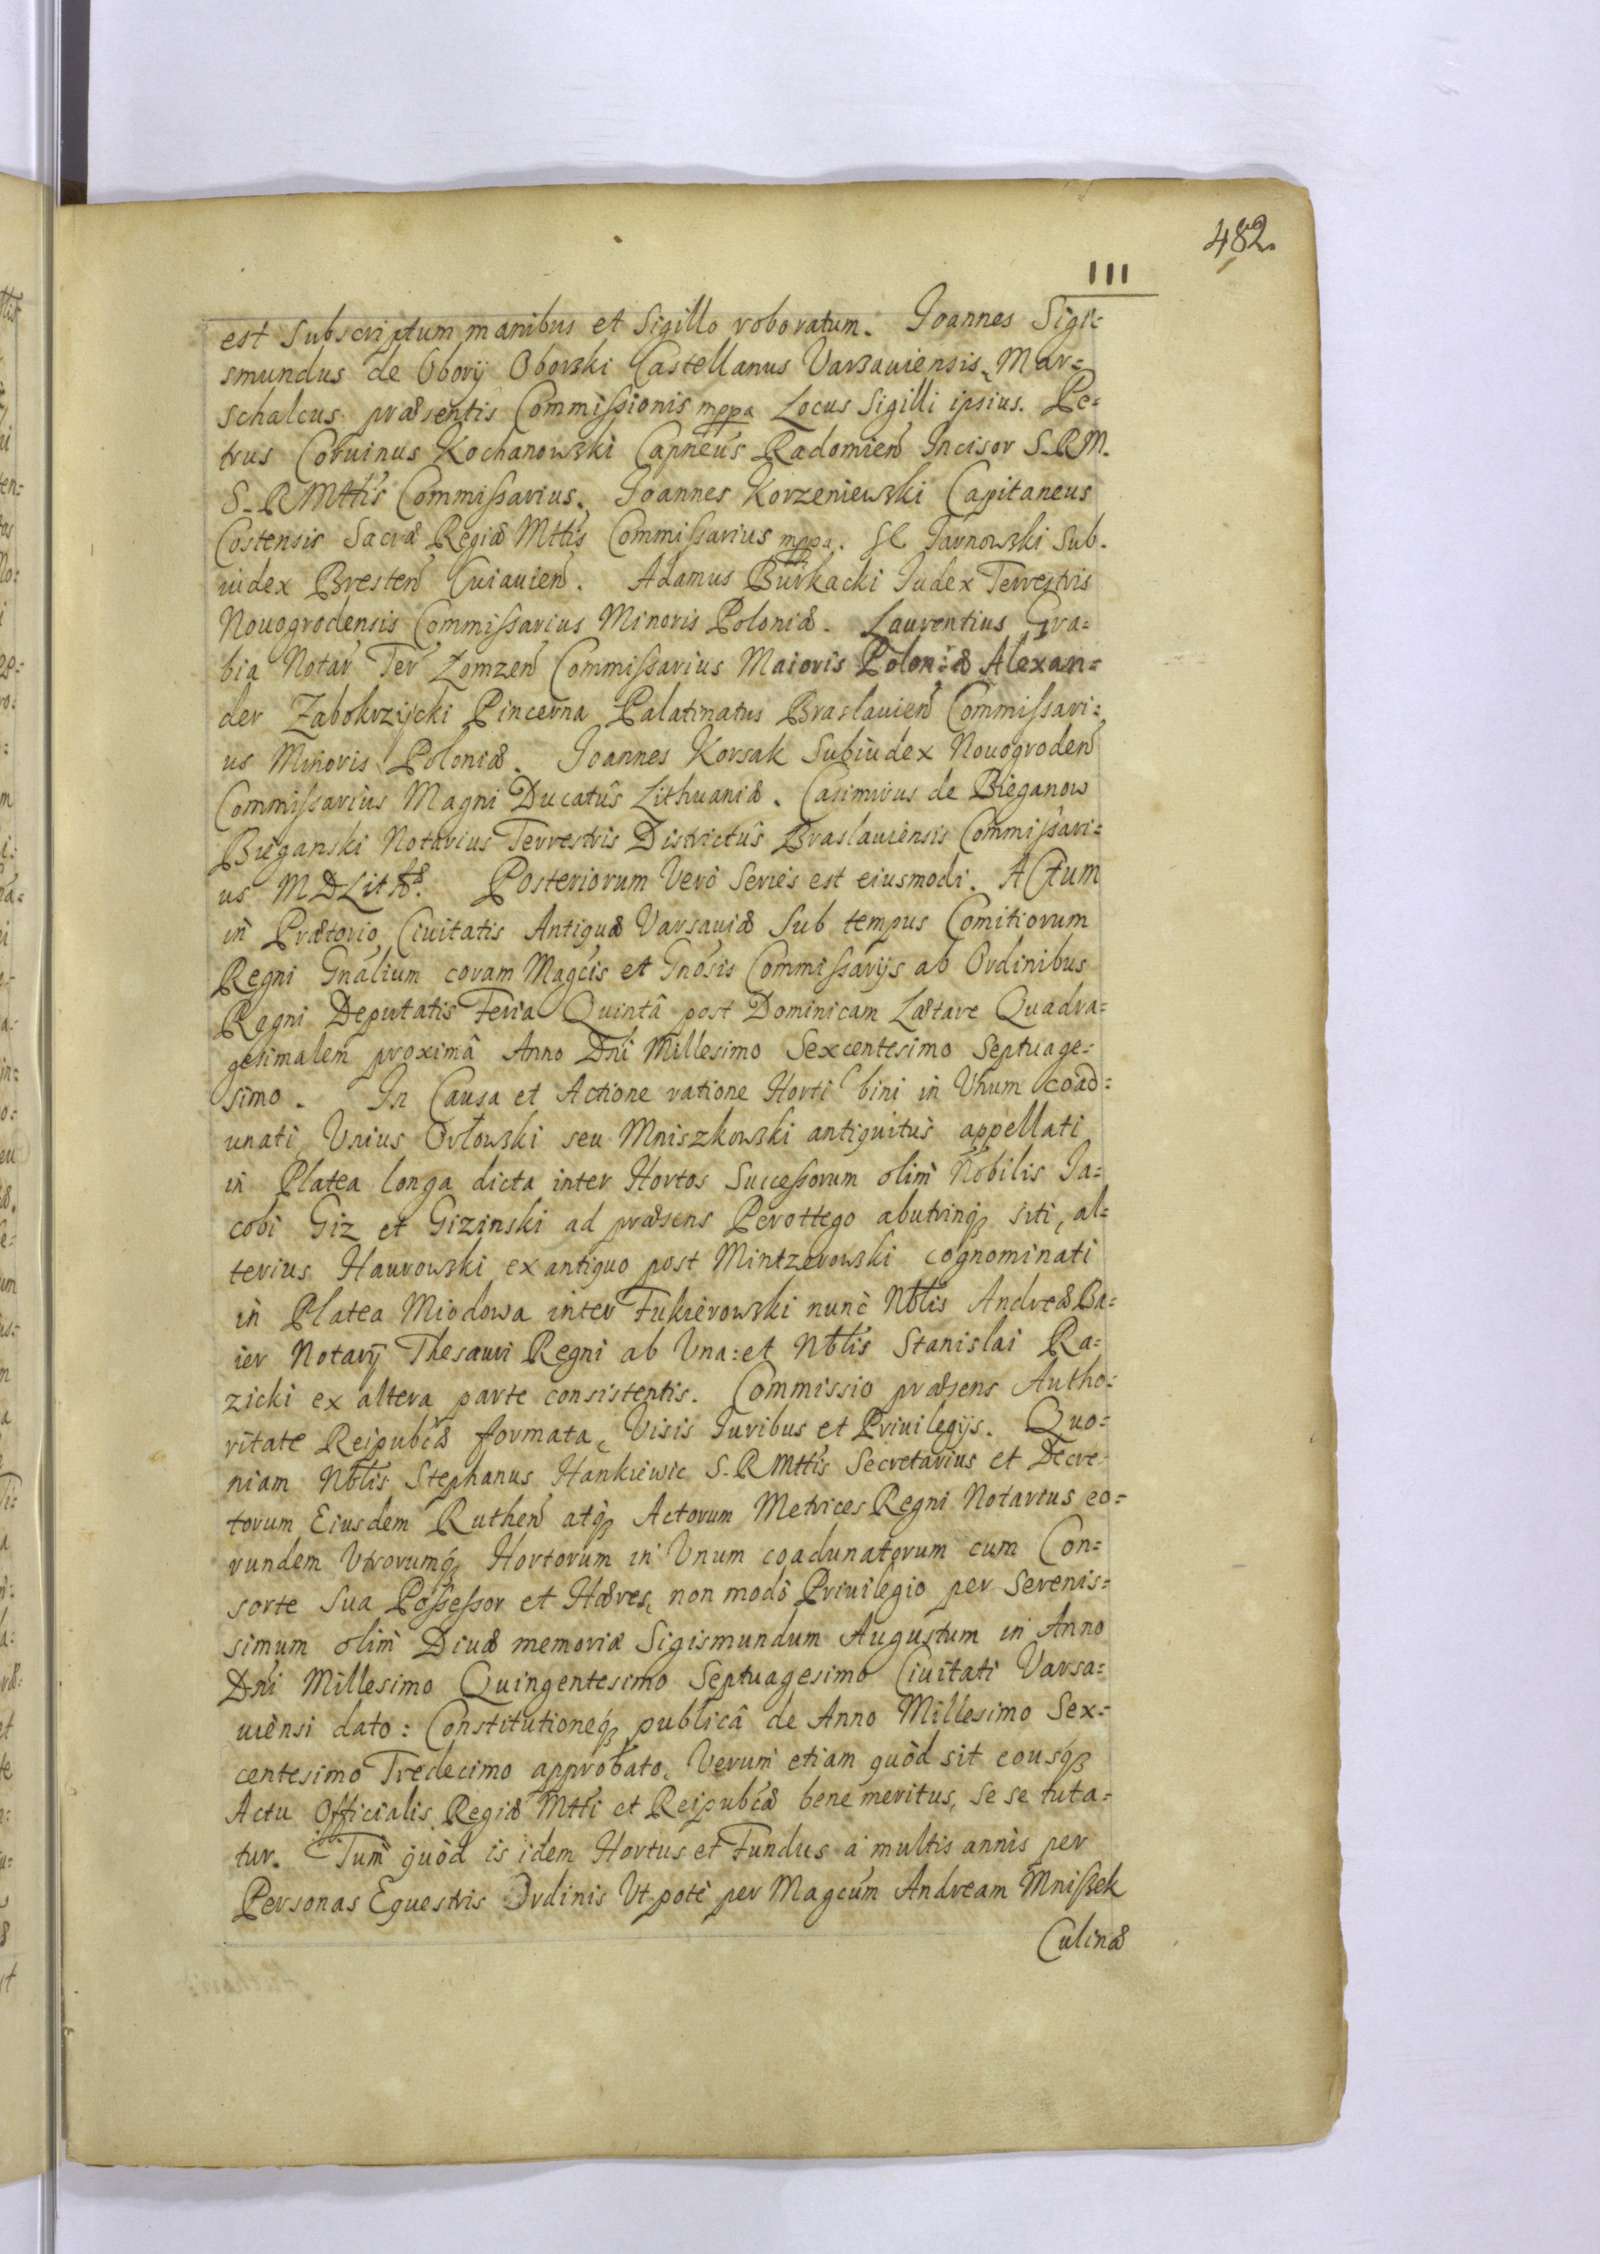 482.
III
est Subscriptum manibus et Sigillo roboratum. Joannes Sigi-
smundus de Obory Oborski Castellanus Varsaviensis, Mar-
schalcus præsentis Commissionis mppa Locus Sigilli ipsius. Pe-
trus Corvinus Kochanowski Capneus Radomien̄ Incisor S.R.M.
S.RMttis Commissarius. Joannes Korzeniewski Capitaneus
Costensis Sacræ Regiæ Mttis Commissarius mppa. Tarnowski Sub-
iudex Bresten̄ Cuiauien̄. Adamus Burkacki Judex Terrestris
Nouogrodensis Commissarius Minoris Poloniæ. Laurentius Gra-
bia Notar̄ Ter̄ Zomzen̄ Commissarius Maioris Poloniæ Alexan-
der Zabokrzijcki Pincerna Palatinatus Braslauien̄ Commissari-
us Minoris Poloniæ. Joannes Korsak Subiudex Nouogroden̄
Commissarius Magni Ducatûs Lithuaniæ. Casimirus de Bieganow
Bieganski Notarius Terrestris Districtûs Braslauiensis Commissari-
us MDLit. Posteriorum Verò Series est eiusmodi. Actum
in Prætorio Ciuitatis Antiquæ Varsauiæ Sub tempus Comitiorum
Regni Gnalium coram Magcis et Gnosis Commissarijs ab Ordinibus
Regni Deputatis Feria Quintâ post Dominicam Lætare Quadra-
gesimalem proximâ Anno Dni Millesimo Sexcentesimo Septuage-
simo. In Causa et Actione ratione Horti bini in Unum coad-
unati, Unius Orłowski seu Mniszkowski antiquitùs appellati
in Platea longa dicta inter Hortos Successorum olim Nobilis Ja-
cobi Giz et Gizinski ad præsens Perottego abutrinq siti, al-
terius Haurowski ex antiquo post Mintzerowski cognominati
in Platea Miodowa inter Fukierowski nunc Nbtlis Andreæ Ba-
ier Notarij Thesauri Regni ab Una: et Nbtlis Stanislai Ra-
zicki ex altera parte consistentis. Commissio præsens Autho-
ritate Reipubcæ formata, Visis Juribus et Priuilegijs. Quo-
niam Nbtlis Stephanus Hankiewic S.RMttis Secretarius et Decre-
torum Eiusdem Ruthen̄ atq Actorum Metrices Regni Notarius eo-
rundem Utrorumq Hortorum in Unum coadunatorum cum Con-
sorte Sua Possessor et Hæres, non modò Priuilegio per Serenis-
simum olim Diuæ memoriæ Sigismundum Augustum in Anno
Dni Millesimo Quingentesimo Septuagesimo Ciuitati Varsa-
uiensi dato: Constitutioneq publicâ de Anno Millesimo Sex-
centesimo Tredecimo approbato, Verum etiam quòd sit eousq
Actu Officialis Regiæ Mtti et Reipubcæ bene meritus, se se tuta-
tur. Tum quòd is idem Hortus et Fundus a multis annis per
Personas Equestris Ordinis Ut pote per Magcum Andream Mniszek
Culinæ